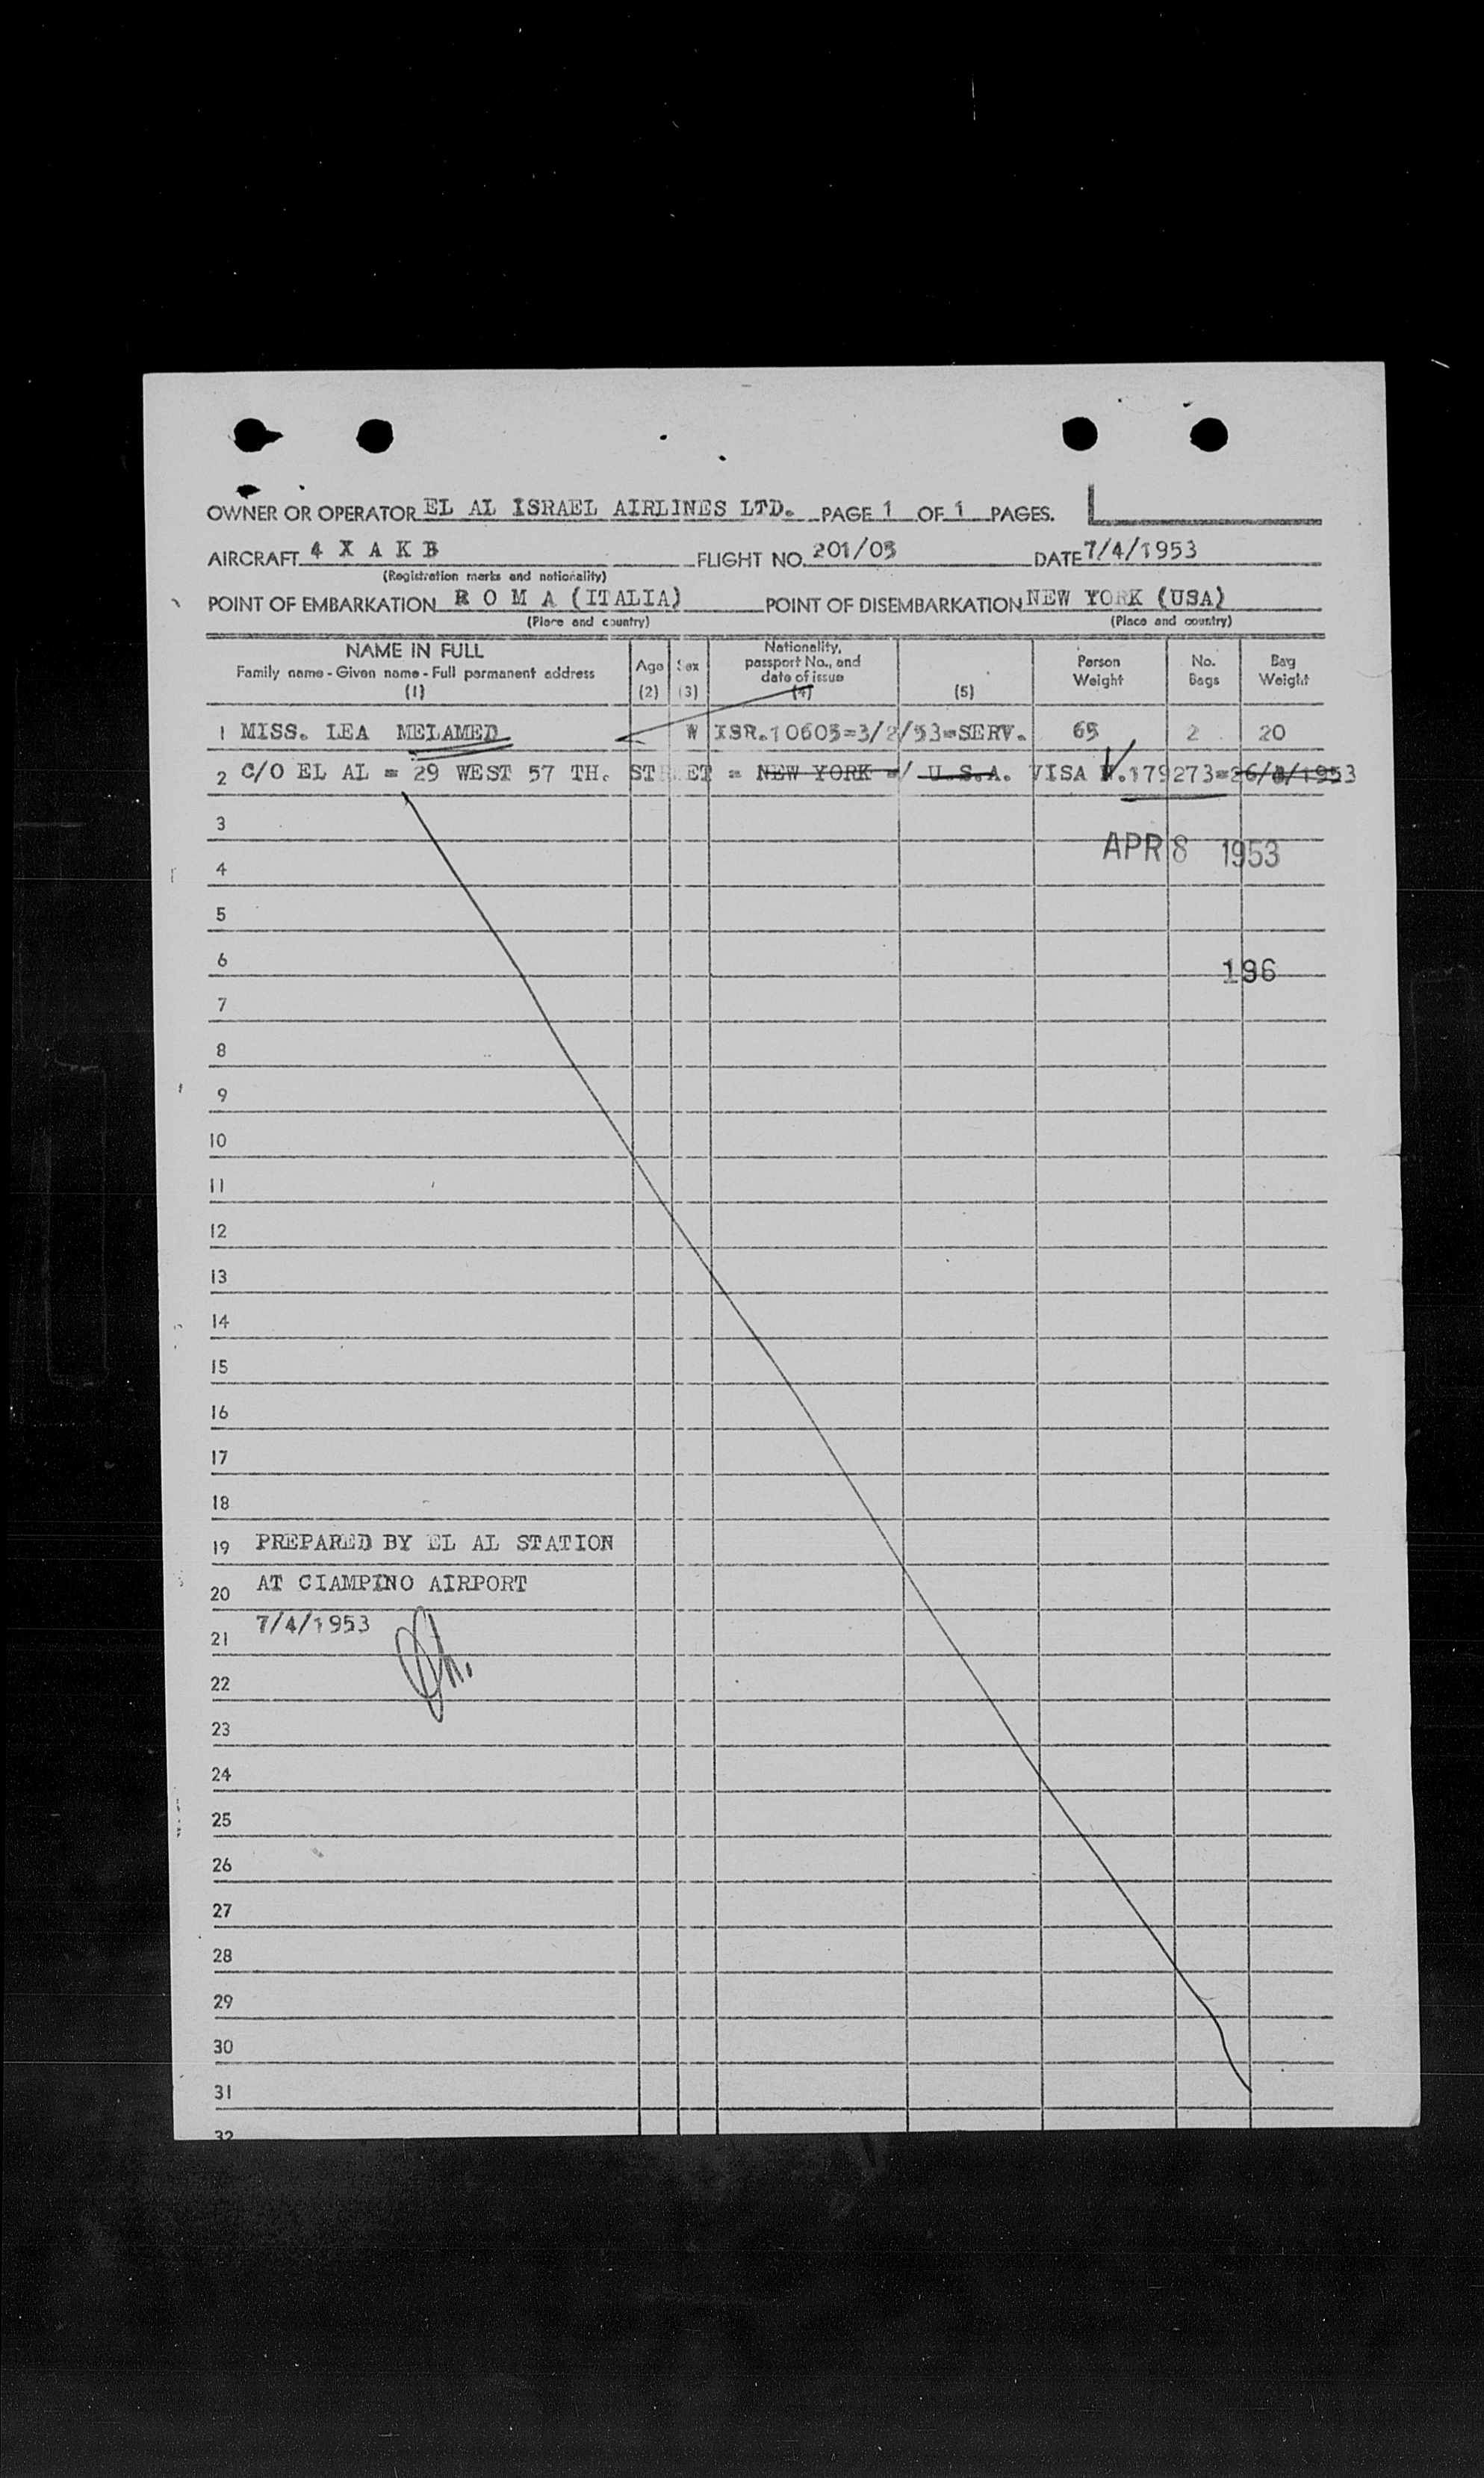 OWNER OR OPERATOR EL AL ISRAEL AIRLINES LTD. PAGE 1 OF 1 PAGES.
AIRCRAFT 4 X A K B FLIGHT NO. 201/05 DATE 7/4/1953
(Registration marks and nationality)
POINT OF EMBARKATION R O M A (ITALIA) POINT OF DISEMBARKATION NEW YORK (USA)
(Place and country) (Place and country)
NAME IN FULL
Family name - Given name - Full permanent address
(1)
Age
(2)
Sex
(3)
Nationality,
passport No., and
date of issue
(4)
(5)
Person
Weight
No.
Bags
Bag
Weight
1 MISS. LEA MELAMED W ISR.10605=3/2/53=SERV. 65 2 20
2 C/O EL AL = 29 WEST 57 TH. STREET = NEW YORK =/ U.S.A. VISA N.179273=26/3/1953
3
APR 8 1953
4
5
6
196
7
8
9
10
11
12
13
14
15
16
17
18
19 PREPARED BY EL AL STATION
20 AT CIAMPINO AIRPORT
21 7/4/1953
22
23
24
25
26
27
28
29
30
31
32